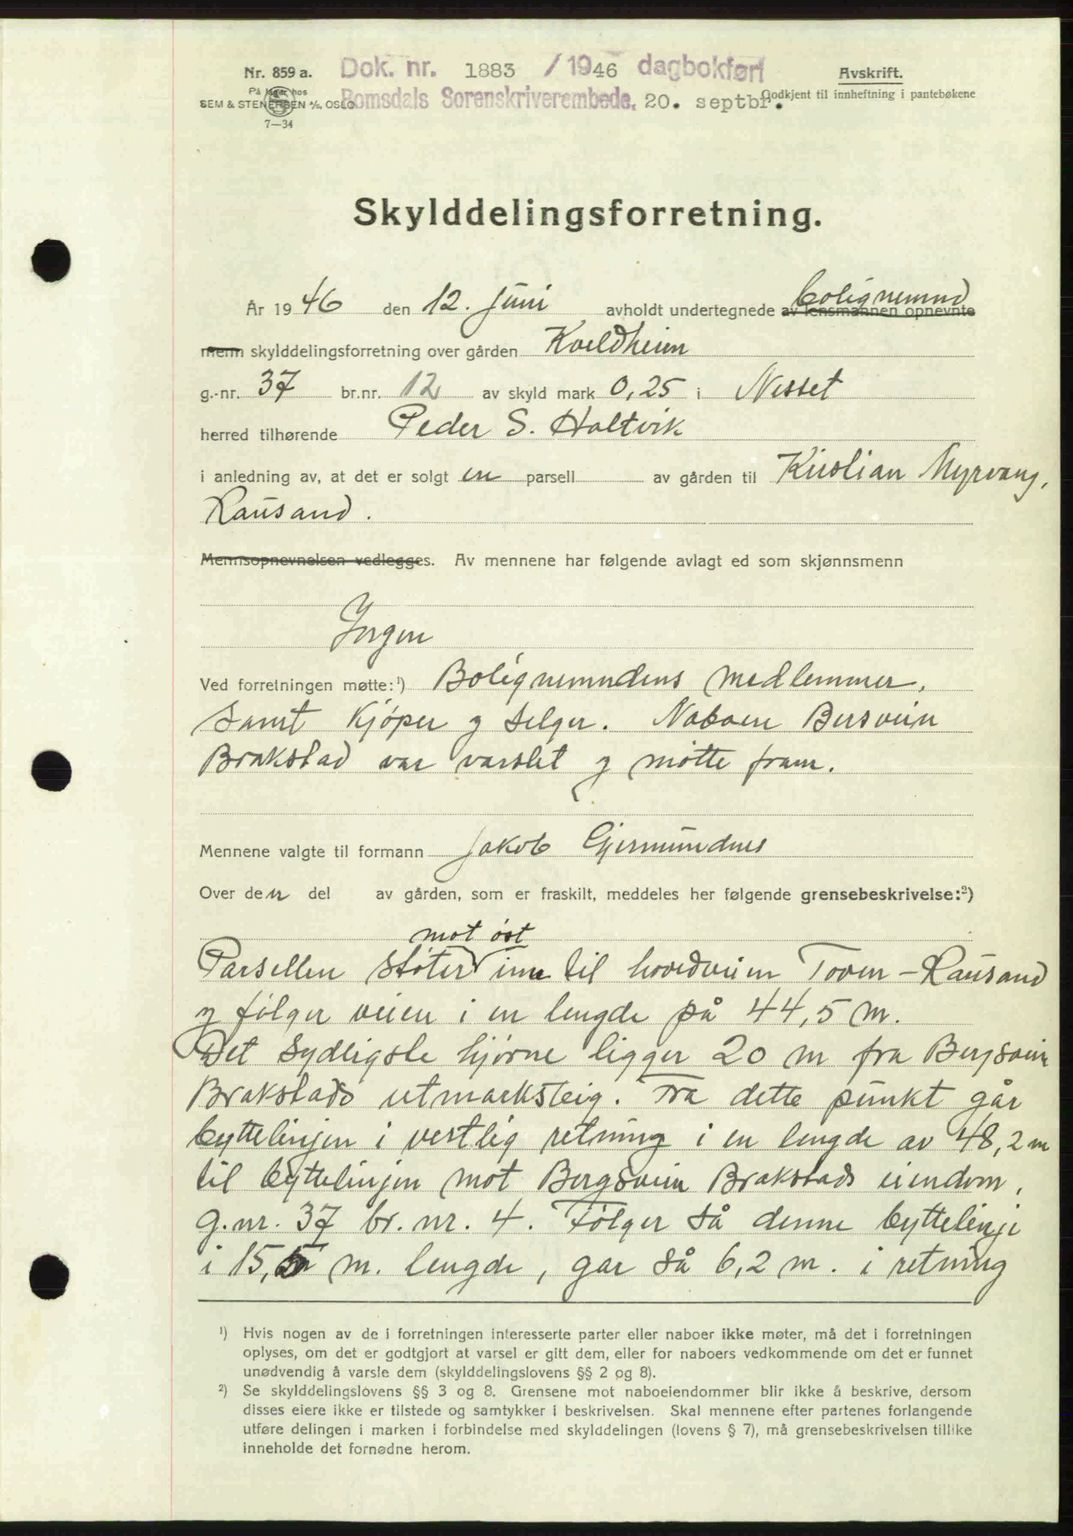 Nr. 859 a.
På lager hos
SEM & STENERSEN A/S, OSLO
7—34
Dok. nr. 1883 / 1946 dagbokført
Romsdals Sorenskriverembede, 20. septbr.
Avskrift.
Godkjent til innheftning i pantebøkene
Skylddelingsforretning.
År 1946 den 12. juni avholdt undertegnede av lensmannen opnevnte bolignemnd
menn skylddelingsforretning over gården Kveldheim
g.-nr. 37 br.nr. 12 av skyld mark 0,25 i Nesset
herred tilhørende Peder S. Holtvik
i anledning av, at det er solgt en parsell av gården til Kristian Myrvang,
Rausand.
Mennsopnevnelsen vedlegges. Av mennene har følgende avlagt ed som skjønnsmenn
Jngen
Ved forretningen møtte:¹) Bolignemndens medlemmer,
samt kjøper og selger. Naboen Bersvein
Brakstad var varslet og møtte fram.
Mennene valgte til formann Jakob Gjermundnes
Over den del av gården, som er fraskilt, meddeles her følgende grensebeskrivelse:²)
mot øst
Parsellen støter inn til hovedveien Toven - Rausand
og følger veien i en lengde på 44,5 m.
Det sydligste hjørne ligger 20 m fra Bergsvein
Brakstads utmarksteig. Fra dette punkt går
byttelinjen i vestlig retning i en lengde av 48,2 m
til byttelinjen mot Bergsvein Brakstads eiendom,
g.nr. 37 br. nr. 4. Følger så denne byttelinje
i 15,5 m. lengde, går så 6,2 m. i retning
¹) Hvis nogen av de i forretningen interesserte parter eller naboer ikke møter, må det i forretningen
oplyses, om det er godtgjort at varsel er gitt dem, eller for naboers vedkommende om det er funnet
unødvendig å varsle dem (skylddelingslovens §§ 2 og 8).
²) Se skylddelingslovens §§ 3 og 8. Grensene mot naboeiendommer blir ikke å beskrive, dersom
disses eiere ikke er tilstede og samtykker i beskrivelsen. Skal mennene efter partenes forlangende
utføre delingen i marken i forbindelse med skylddelingen (lovens § 7), må grensebeskrivelsen tillike
inneholde det fornødne herom.